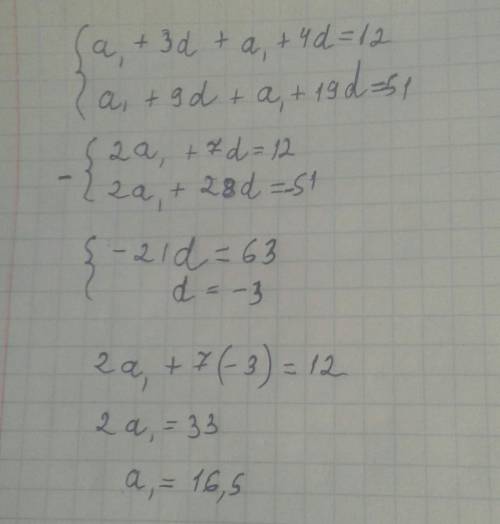 a₁ + 3d + a₁ + 4d = 12
a₁ + 9d + a₁ + 19d = -51
2a₁ + 7d = 12
- 2a₁ + 28d = -51
-21d = 63
d = -3
2a₁ + 7(-3) = 12
2a₁ = 33
a₁ = 16,5